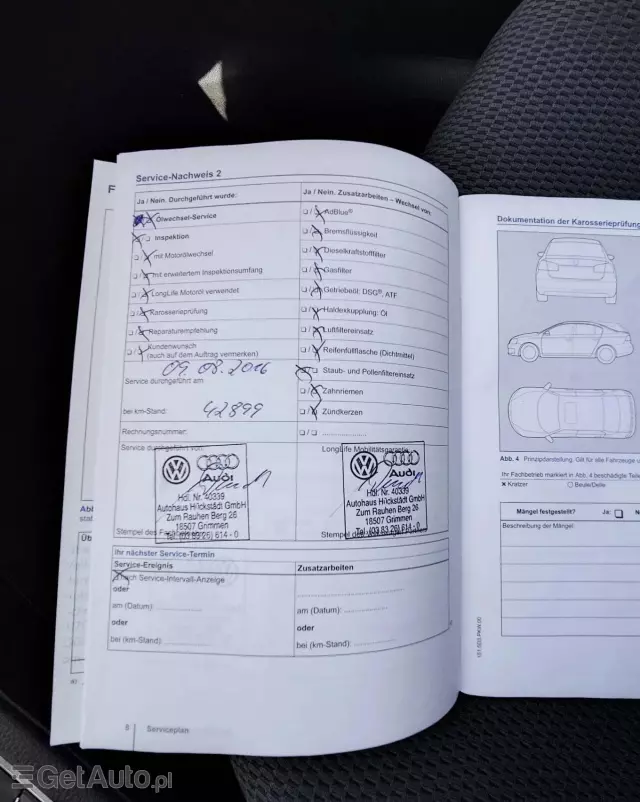 Service-Nachweis 2
Ja / Nein. Durchgeführt wurde:
Ölwechsel-Service
Inspektion
mit Motorölwechsel
mit erweitertem Inspektionsumfang
LongLife Motoröl verwendet
Karosserieprüfung
Reparaturempfehlung
Kundenwunsch
(auch auf dem Auftrag vermerken)
09.08.2016
Service durchgeführt am
bei km-Stand: 42899
Rechnungsnummer:
Service durchgeführt von:
Audi
Hdl. Nr. 40339
Autohaus Hückstädt GmbH
Zum Rauhen Berg 26
18507 Grimmen
Tel. (03 83 26) 614 - 0
Stempel des
Ja / Nein. Zusatzarbeiten – Wechsel von:
AdBlue®
Bremsflüssigkeit
Dieselkraftstofffilter
Gasfilter
Getriebeöl: DSG®, ATF
Haldexkupplung: Öl
Luftfiltereinsatz
Reifenfüllflasche (Dichtmittel)
Staub- und Pollenfiltereinsatz
Zahnriemen
Zündkerzen
LongLife Mobilitätsgarantie
Audi
Hdl. Nr. 40339
Autohaus Hückstädt GmbH
Zum Rauhen Berg 26
18507 Grimmen
Tel. (03 83 26) 614 - 0
Stempel des
Ihr nächster Service-Termin
Service-Ereignis
nach Service-Intervall-Anzeige
oder
am (Datum):
oder
bei (km-Stand):
Zusatzarbeiten
am (Datum):
oder
bei (km-Stand):
8 Serviceplan
Dokumentation der Karosserieprüfung
Abb. 4 Prinzipdarstellung. Gilt für alle Fahrzeuge
Ihr Fachbetrieb markiert in Abb. 4 beschädigte Teile
x Kratzer ○ Beule/Delle
Mängel festgestellt? Ja:
Beschreibung der Mängel:
GetAuto.pl